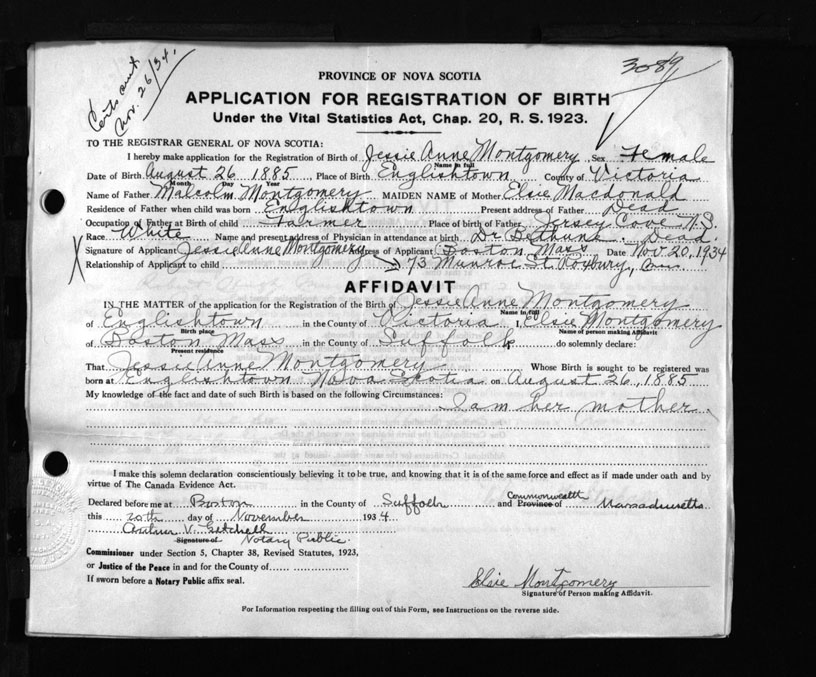 Certs sent
Nov. 26/34.
3089
PROVINCE OF NOVA SCOTIA
APPLICATION FOR REGISTRATION OF BIRTH
Under the Vital Statistics Act, Chap. 20, R. S. 1923.
TO THE REGISTRAR GENERAL OF NOVA SCOTIA:
I hereby make application for the Registration of Birth of Jessie Anne Montgomery Sex Female
Name in full
Date of Birth August 26 1885 Place of Birth Englishtown County of Victoria
Month Day Year
Name of Father Malcolm Montgomery MAIDEN NAME of Mother Elsie Macdonald
Residence of Father when child was born Englishtown Present address of Father Dead
Occupation of Father at Birth of child Farmer Place of birth of Father Jersey Cove N.S.
Race White Name and present address of Physician in attendance at birth Dr Bethune. Dead.
Signature of Applicant Jessie Anne Montgomery Address of Applicant Boston Mass Date Nov 20, 1934
Relationship of Applicant to child 73 Munroe St Roxbury,
AFFIDAVIT
IN THE MATTER of the application for the Registration of the Birth of Jessie Anne Montgomery
Name in full
of Englishtown in the County of Victoria I, Elsie Montgomery
Birth place Name of person making Affidavit
of Boston Mass in the County of Suffolk do solemnly declare:
Present residence
That Jessie Anne Montgomery Whose Birth is sought to be registered was
born at Englishtown Nova Scotia on August 26, 1885
My knowledge of the fact and date of such Birth is based on the following Circumstances:
I am her mother.
I make this solemn declaration conscientiously believing it to be true, and knowing that it is of the same force and effect as if made under oath and by
virtue of The Canada Evidence Act.
Declared before me at Boston in the County of Suffolk and Province of Commonwealth Massachusetts
this 20th day of November 1934
Arthur V. Getchell
Signature of Notary Public.
Commissioner under Section 5, Chapter 38, Revised Statutes, 1923,
or Justice of the Peace in and for the County of
If sworn before a Notary Public affix seal.
Elsie Montgomery
Signature of Person making Affidavit.
For Information respecting the filling out of this Form, see Instructions on the reverse side.